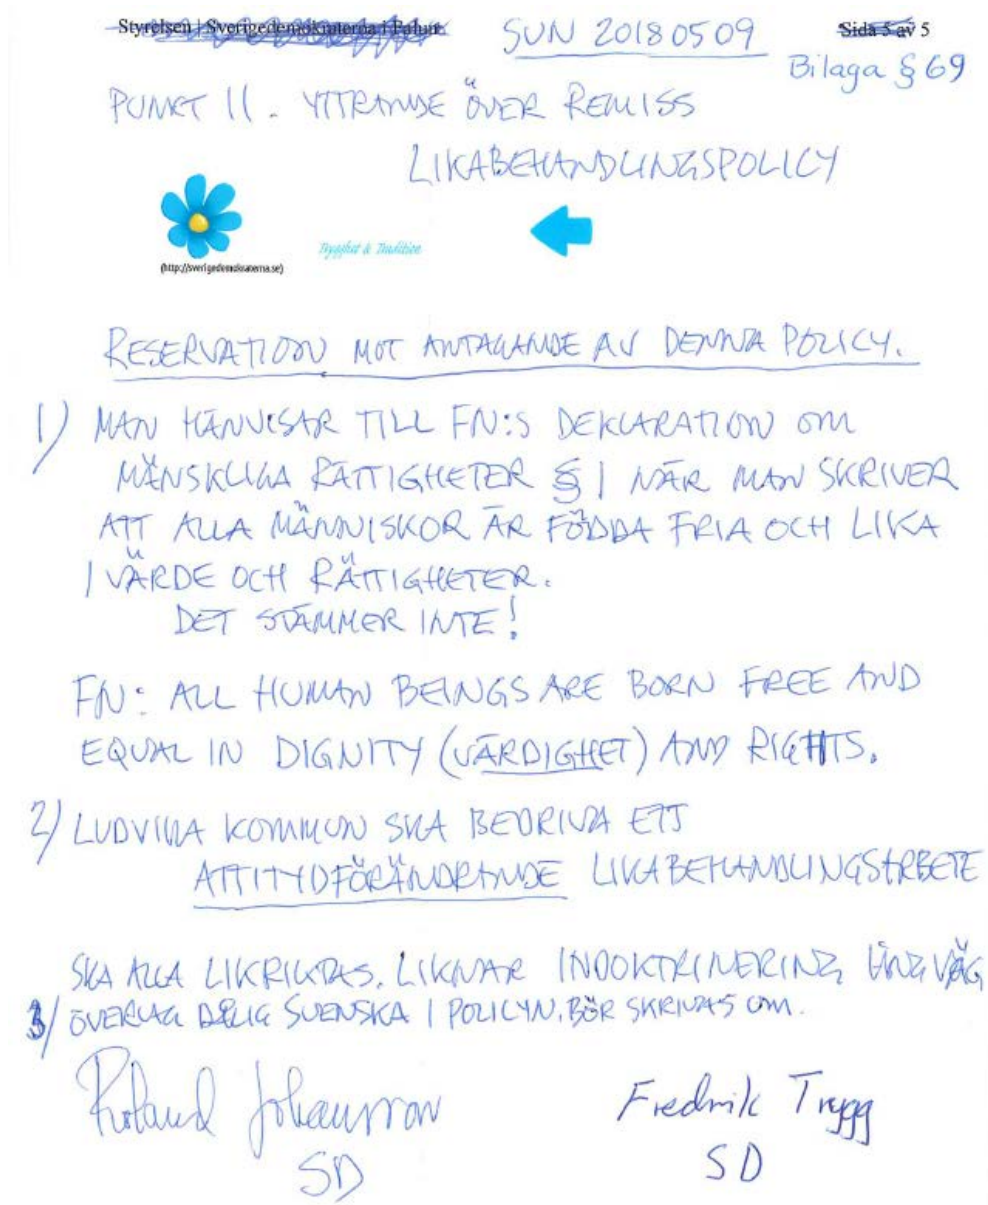 Styrelsen | Sverigedemokraterna i Falun
SUN 20180509
Sida 5 av 5
Bilaga § 69
PUNKT 11. YTTRANDE ÖVER REMISS
LIKABEHANDLINGSPOLICY
Trygghet & Tradition
(http://sverigedemokraterna.se)
RESERVATION MOT ANTAGANDE AV DENNA POLICY.
1) MAN HÄNVISAR TILL FN:S DEKLARATION OM
MÄNSKLIGA RÄTTIGHETER § 1 NÄR MAN SKRIVER
ATT ALLA MÄNNISKOR ÄR FÖDDA FRIA OCH LIKA
I VÄRDE OCH RÄTTIGHETER.
DET STÄMMER INTE!
FN: ALL HUMAN BEINGS ARE BORN FREE AND
EQUAL IN DIGNITY (VÄRDIGHET) AND RIGHTS.
2) LUDVIKA KOMMUN SKA BEDRIVA ETT
ATTITYDFÖRÄNDRANDE LIKABEHANDLINGSARBETE
SKA ALLA LIKRIKTAS. LIKNAR INDOKTRINERING LÅNG VÄG
3) ÖVERLAG DÅLIG SVENSKA I POLICYN, BÖR SKRIVAS OM.
Roland Johansson
Fredrik Trygg
SD
SD